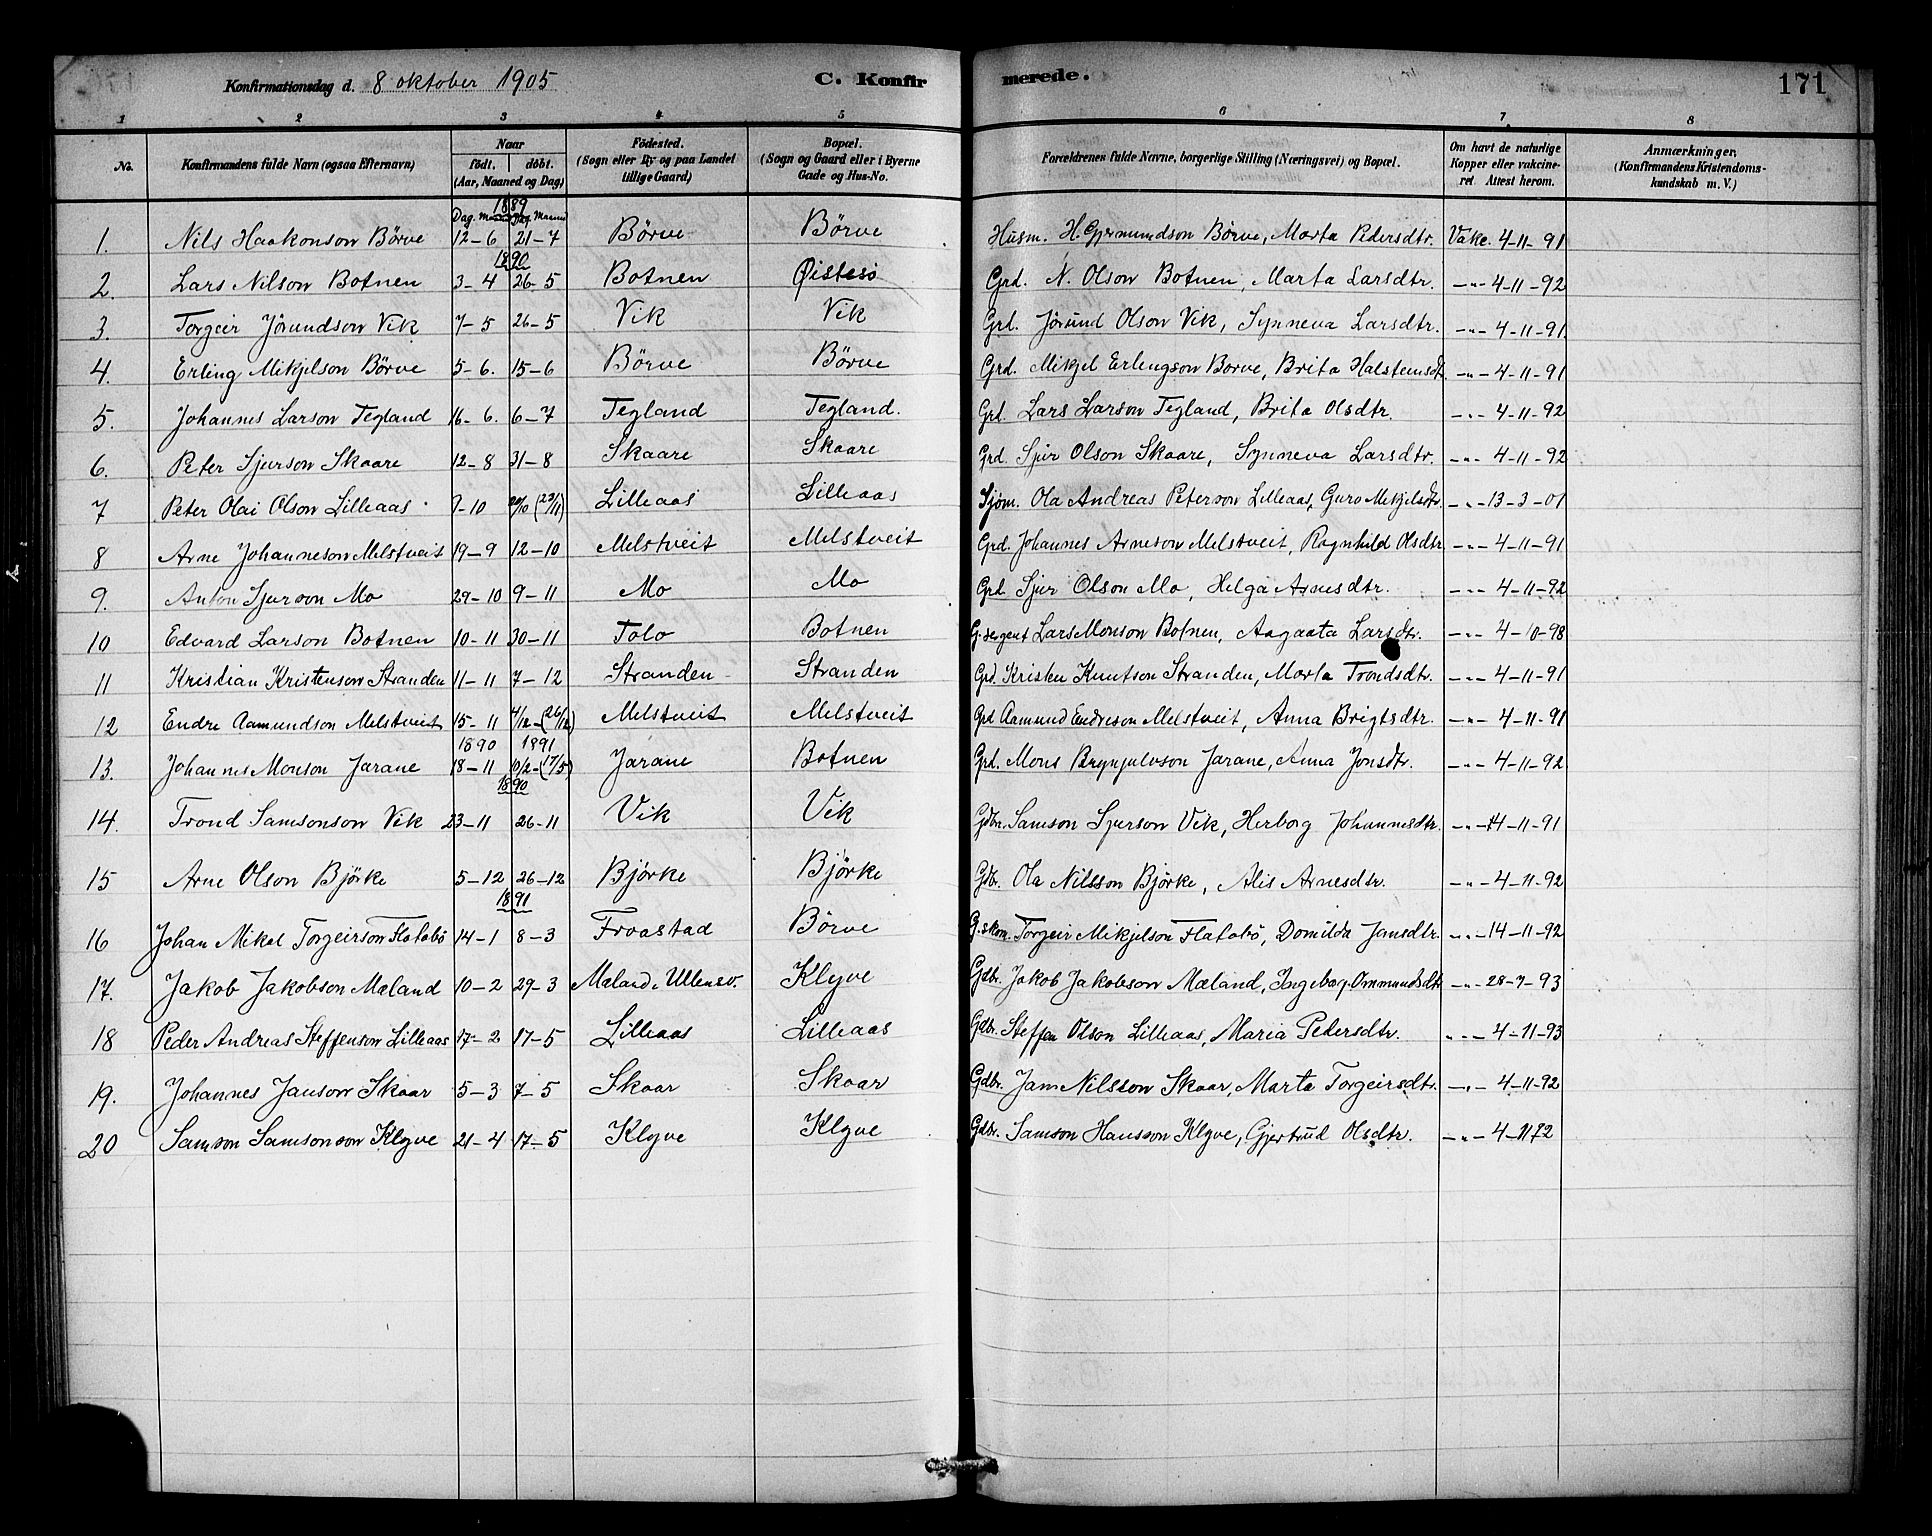 Konfirmationsdag d. 8 oktober 1905 C. Konfirmerede. 171
1 2 3 4 5 6 7 8
No. Konfirmandens fulde Navn (ogsaa Efternavn) Naar födt. döbt. (Aar, Maaned og Dag) Födested. (Sogn eller By og paa Landet tillige Gaard) Bopæl. (Sogn og Gaard eller i Byerne Gade og Hus-No. Forældrenes fulde Navne, borgerlige Stilling (Næringsvei) og Bopæl. Om havt de naturlige Kopper eller vakcineret Attest herom. Anmærkninger. (Konfirmandens Kristendomskundskab m. V.)
1889
Dag. Maaned Dag. Maaned
1. Nils Haakonson Börve 12-6 21-7 Börve Börve Husm. H. Gjermundson Börve, Marta Pedersdtr. Vakc. 4-11-91
1890
2. Lars Nilson Botnen 3-4 26-5 Botnen Øistesö Grd. N. Olson Botnen, Marta Larsdtr. -"- 4-11-92
3. Torgeir Jörundson Vik 7-5 26-5 Vik Vik Grd. Jörund Olson Vik, Synneva Larsdtr. -"- 4-11-91
4. Erling Mikjelson Börve 5-6. 15-6 Börve Börve Grd. Mikjel Erlingson Börve, Brita Halsteinsdtr. -"- 4-11-91
5. Johannes Larson Tegland 16-6. 6-7 Tegland Tegland. Grd. Lars Larson Tegland, Brita Olsdtr. -"- 4-11-92
6. Peter Sjurson Skaare 12-8 31-8 Skaare Skaare Grd. Sjur Olson Skaare, Synneva Larsdtr. -"- 4-11-92
7 Peter Olai Olson Lilleaas 7-10 20/10 (23/11) Lilleaas Lilleaas Sjöm. Ola Andreas Peterson Lilleaas, Guro Mikjelsdtr. -"- 13-3-01
8 Arne Johanneson Melstveit 19-9 12-10 Melstveit Melstveit Grd. Johannes Arneson Melstveit, Ragnhild Olsdtr -"- 4-11-91
9. Anton Sjurson Mo 29-10 9-11 Mo Mo Grd. Sjur Olson Mo, Helga Arnesdtr. -"- 4-11-92
10 Edvard Larson Botnen 10-11 30-11 Tolo Botnen G. sergent Lars Monson Botnen, Aagaata Larsdtr. -"- 4-10-98
11 Kristian Kristenson Stranden 11-11 7-12 Stranden Stranden Grd. Kristen Knutson Stranden, Marta Trondsdtr. -"- 4-11-91
12 Endre Aamundson Melstveit 15-11 4/12-(26/12) Melstveit Melstveit Grd Aamund Endreson Melstveit, Anna Brigtsdtr. -"- 4-11-91
1890 1891
13. Johannes Monson Jarane 18-11 10/2-(17/5) Jarane Botnen Grd. Mons Brynjulvson Jarane, Anna Jonsdtr. -"- 4-11-92
1890
14. Trond Samsonson Vik 23-11 26-11 Vik Vik Gdbr. Samson Sjurson Vik, Herborg Johannesdtr. -"- 4-11-91
15 Arne Olson Björke 5-12 26-12 Björke Björke Gdbr. Ola Nilsson Björke, Alis Arnesdtr. -"- 4-11-92
1891
16 Johan Mikal Torgeirson Flatabö 14-1 8-3 Froastad Börve G. skom. Torgeir Mikjelson Flatabö, Domilda Jansdtr. -"- 14-11-92
17. Jakob Jakobson Mæland 10-2 29-3 Mæland, Ullensv. Klyve Gdbr. Jakob Jakobson Mæland, Ingeborg Ommundsdtr -"- 28-7-93
18 Peder Andreas Steffenson Lilleaas 17-2 17-5 Lilleaas Lilleaas Gdbr. Steffen Olson Lilleaas, Maria Pedersdtr. -"- 4-11-93
19. Johannes Janson Skaar 5-3 7-5 Skaar Skaar Gdbr. Jan Nilsson Skaar, Marta Torgeirsdtr. -"- 4-11-92
20 Samson Samsonson Klyve 21-4 17-5 Klyve Klyve Gdbr. Samson Hansson Klyve, Gjertrud Olsdtr. -"- 4-1172